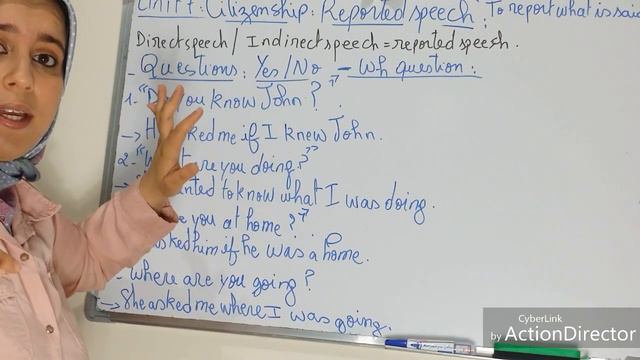 Unit 7: Citizenship: Reported speech: To report what is said
Direct speech / Indirect speech = reported speech.
- Questions: Yes / No - Wh question:
1- " you know John? "
→ asked me if I knew John.
2- " are you doing? "
to know what I was doing.
you at home? "
asked him if he was a home.
- Where are you going?
→ She asked me where I was going.
CyberLink
by ActionDirector